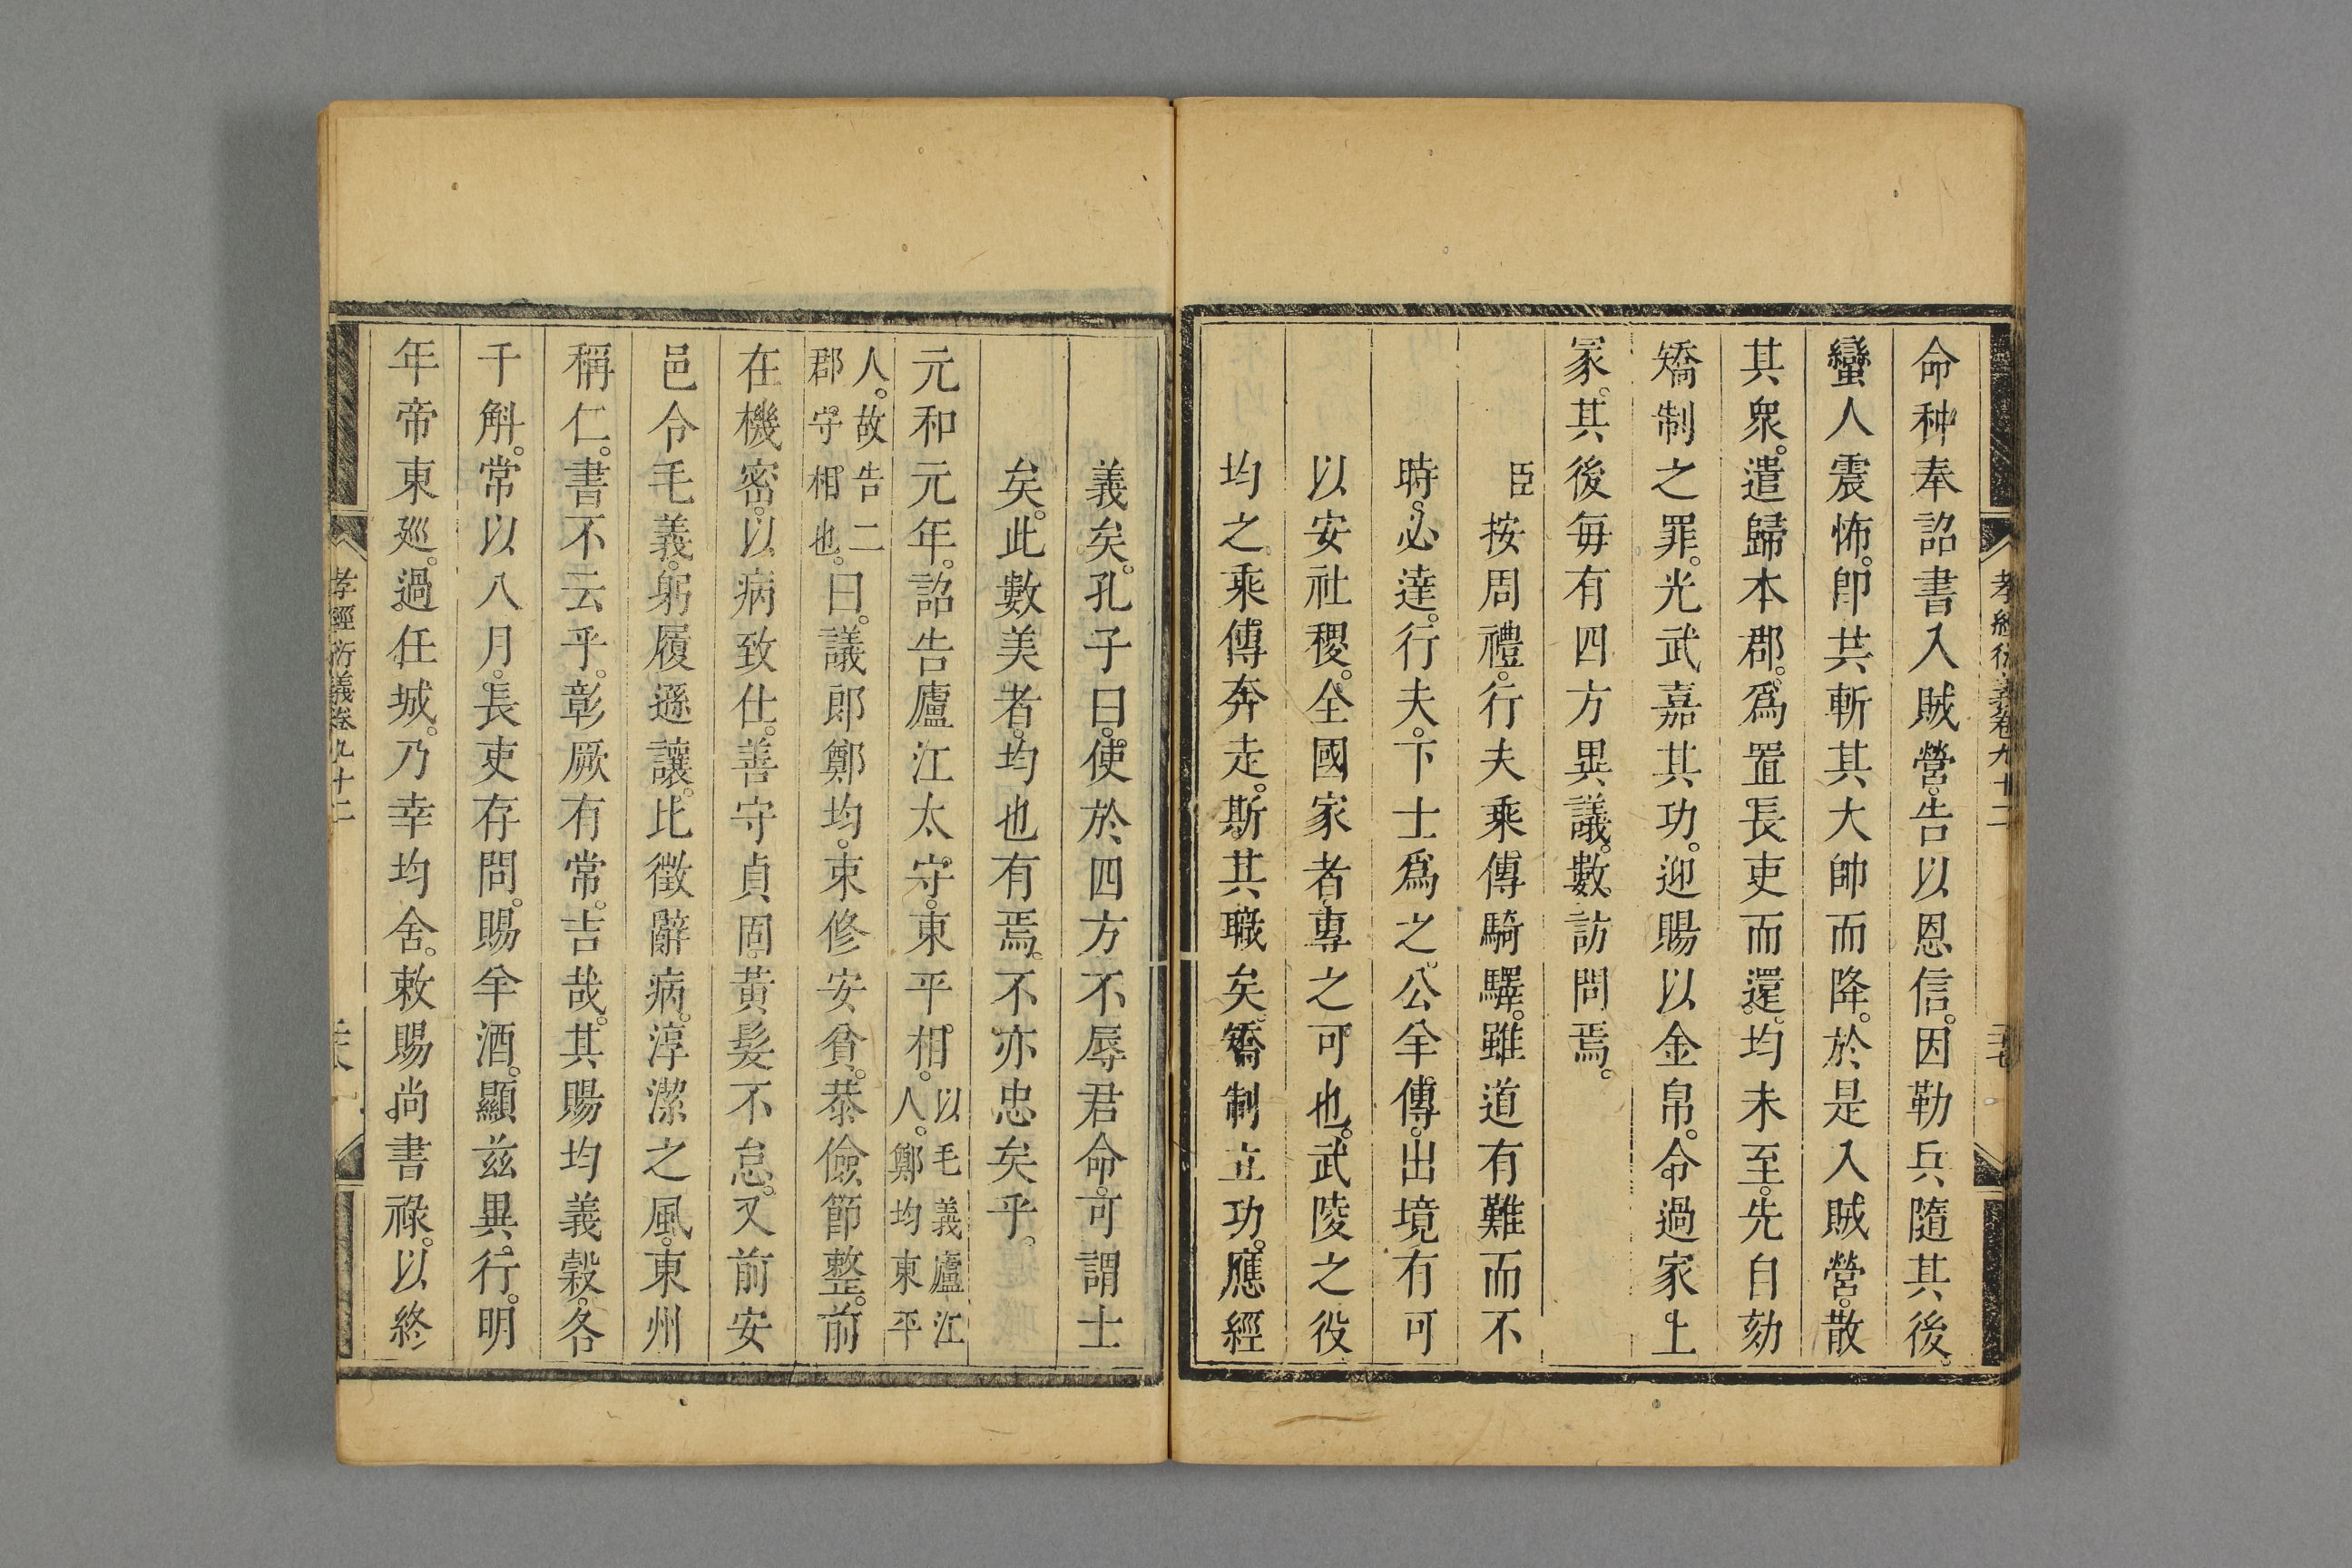 命种奉詔書入賊營。告以恩信。因勒兵隨其後。
蠻人震怖。卽共斬其大帥而降。於是入賊營。散
其衆。遣歸本郡。爲置長吏而還。均未至。先自劾
矯制之罪。光武嘉其功。迎賜以金帛。令過家上
冢。其後每有四方異議。數訪問焉。
臣按周禮。行夫乘傳騎驛。雖道有難而不
時。必達。行夫。下士爲之。公羊傳。出境有可
以安社稷。全國家者。專之可也。武陵之役
均之乘傳奔走。斯其職矣。矯制立功。應經
孝經衍義卷九十二
義矣。孔子曰。使於四方不辱君命。可謂士
矣。此數美者。均也有焉。不亦忠矣乎。
元和元年。詔告廬江太守。東平相。以毛義廬江
人。鄭均東平
人。故告二
郡守相也。曰。議郎鄭均。束修安貧。恭儉節整。前
在機密。以病致仕。善守貞固。黃髮不怠。又前安
邑令毛義。躬履遜讓。比徵辭病。淳潔之風。東州
稱仁。書不云乎。彰厥有常。吉哉。其賜均義穀。各
千斛。常以八月。長吏存問。賜羊酒。顯茲異行。明
年帝東廵。過任城。乃幸均舍。敕賜尚書祿。以終
孝經衍義卷九十二